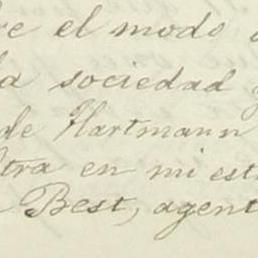 re el modo
la sociedad
de Hartmann
tra en mi est
Best, agent